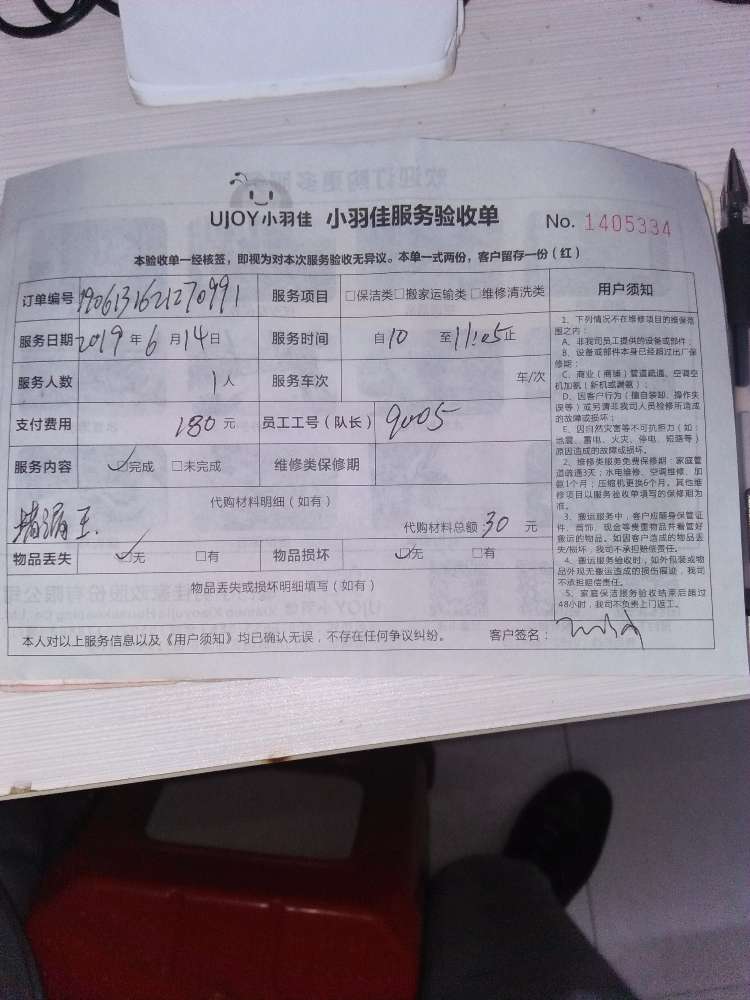 UJOY小羽佳 小羽佳服务验收单 No. 1405334
本验收单一经核签，即视为对本次服务验收无异议。本单一式两份，客户留存一份（红）
订单编号 1906131621270991 服务项目 □保洁类□搬家运输类 □维修清洗类 用户须知
服务日期 2019 年 6 月 14 日 服务时间 自 10 至 11:05 止
服务人数 1 人 服务车次 车/次
支付费用 180 元 员工工号（队长） 9005
服务内容 ☑完成 □未完成 维修类保修期
代购材料明细（如有）
堵漏王. 代购材料总额 30 元
物品丢失 ☑无 □有 物品损坏 ☑无 □有
物品丢失或损坏明细填写（如有）
本人对以上服务信息以及《用户须知》均已确认无误，不存在任何争议纠纷。 客户签名：
1、下列情况不在维修项目的维保范
围之内：
A、非我司员工提供的设备或部件；
B、设备或部件本身已经超过出厂保
修期；
C、商业（商铺）管道疏通、空调空
机加氨（新机或漏氨）；
D、因客户行为（擅自装卸、操作失
误等）或另请非我司人员检修所造成
的故障或损坏；
E、因自然灾害等不可抗拒力（如：
地震、雷电、火灾、停电、短路等）
原因造成的故障或损坏。
2、维修类服务免费保修期：家庭管
道疏通3天；水电维修、空调维修、加
氨1个月；压缩机更换6个月。其他维
修项目以服务验收单填写的保修期为
准。
3、搬运服务中，客户应随身保管证
件、首饰、现金等贵重物品并看管好
搬运的物品。如因客户造成的物品丢
失/损坏，我司不承担赔偿责任。
4、搬运服务验收时，如外包装或物
品外观无搬运造成的损伤痕迹，我司
不承担赔偿责任。
5、家庭保洁服务验收结束后超过
48小时，我司不负责上门返工。